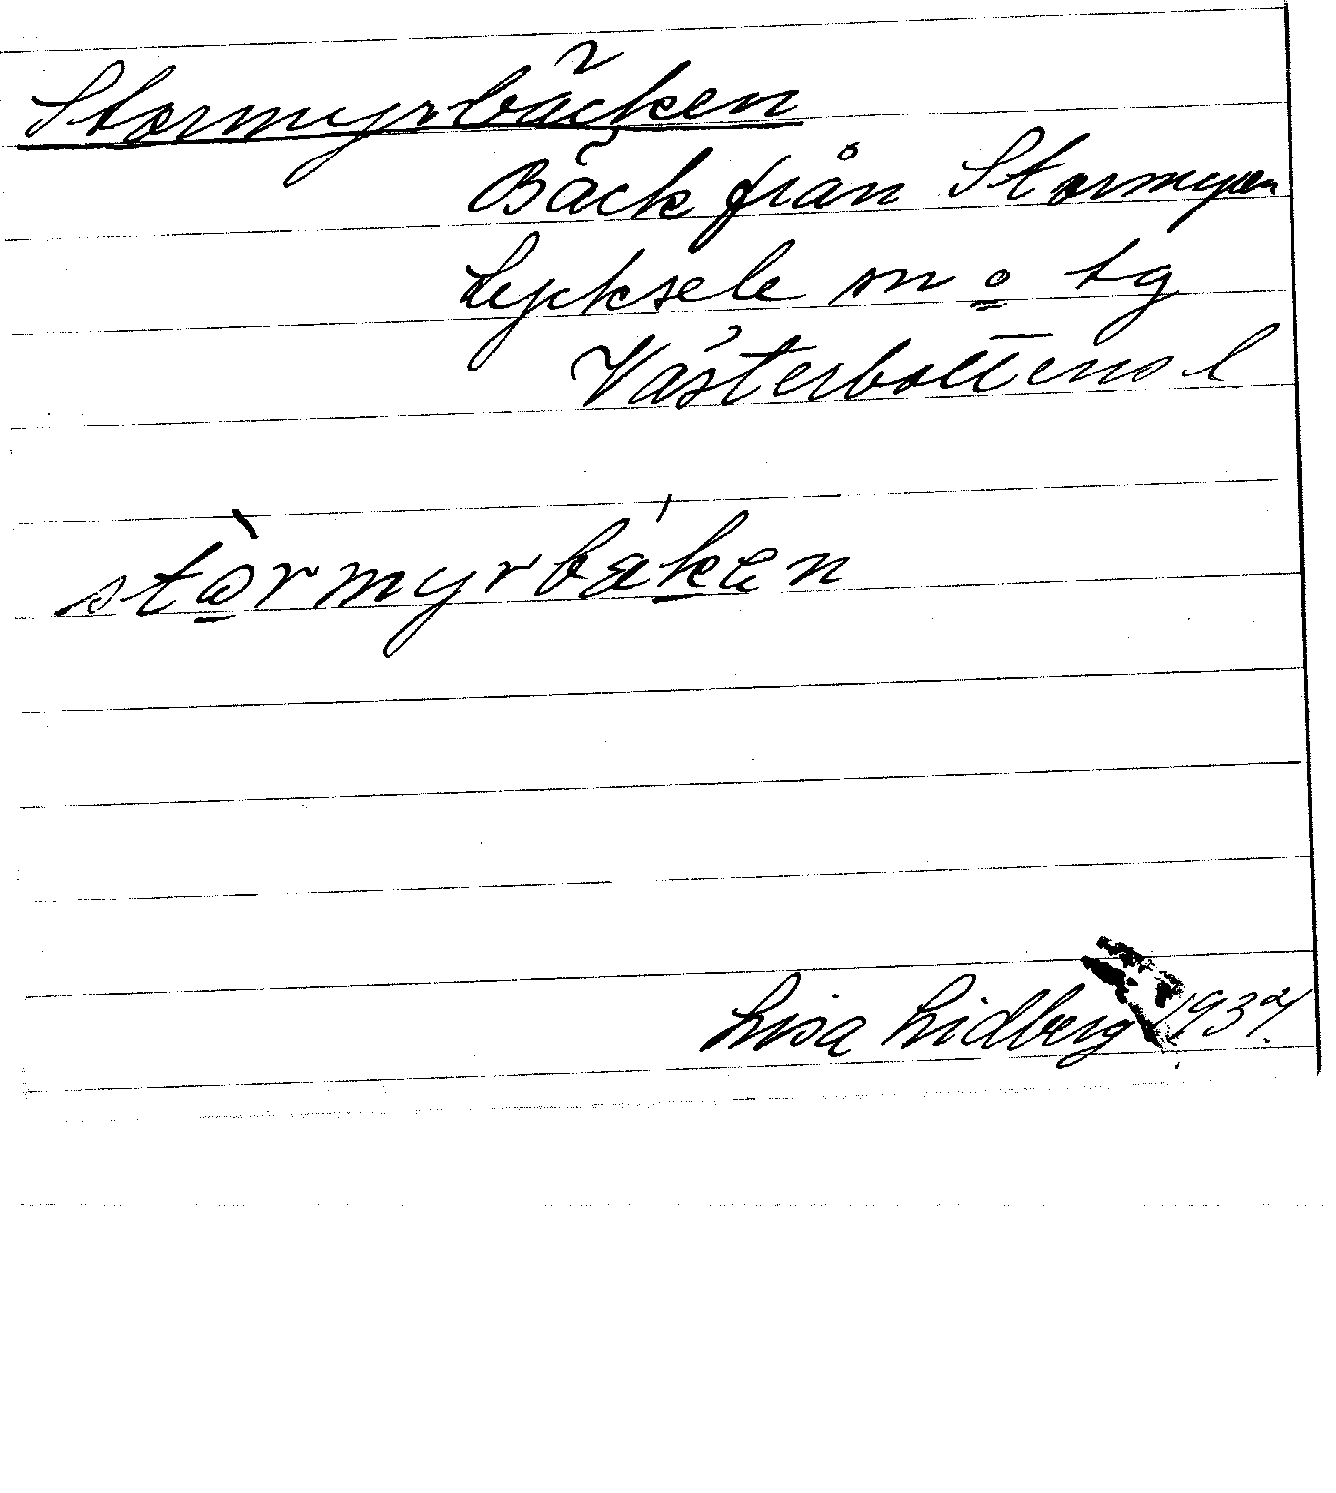 Stormyrbäcken
Bäck från Stormyren
Lycksele sn o tg
Västerbottens l
stòrmyrbäken
Lisa Lidberg 1937.